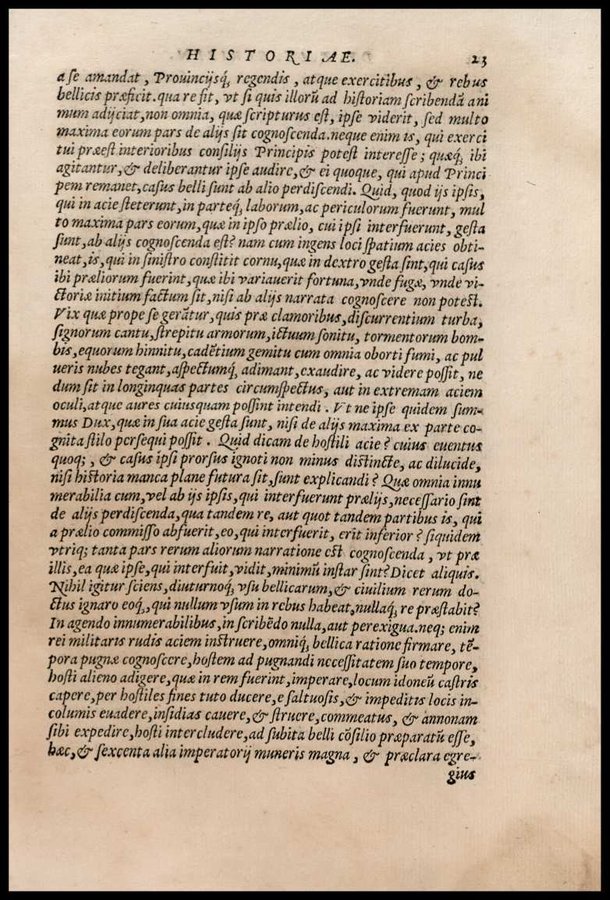 HISTORIAE. 23
a se amandat, Prouincijsq́, regendis, atque exercitibus, & rebus
bellicis præficit. qua re fit, vt si quis illorũ ad historiam scribendã ani
mum adijciat, non omnia, quæ scripturus est, ipse viderit, sed multo
maxima eorum pars de alijs sit cognoscenda. neque enim is, qui exerci
tui præest interioribus consilijs Principis potest interesse; quæq́, ibi
agitantur, & deliberantur ipse audire, & ei quoque, qui apud Princi
pem remanet, casus belli sunt ab alio perdiscendi. Quid, quod ijs ipsis,
qui in acie steterunt, in parteq́, laborum, ac periculorum fuerunt, mul
to maxima pars eorum, quæ in ipso prælio, cui ipsi interfuerunt, gesta
sunt, ab alijs cognoscenda est? nam cum ingens loci spatium acies obti-
neat, is, qui in sinistro constitit cornu, quæ in dextro gesta sint, qui casus
ibi præliorum fuerint, quæ ibi variauerit fortuna, vnde fugæ, vnde vi-
ctoriæ initium factum sit, nisi ab alijs narrata cognoscere non potest.
Vix quæ prope se gerãtur, quis præ clamoribus, discurrentium turba,
signorum cantu, strepitu armorum, ictuum sonitu, tormentorum bom-
bis, equorum hinnitu, cadẽtium gemitu cum omnia oborti fumi, ac pul
ueris nubes tegant, aspectumq́, adimant, exaudire, ac videre possit, ne
dum sit in longinquas partes circumspectus, aut in extremam aciem
oculi, atque aures cuiusquam possint intendi. Vt ne ipse quidem sum-
mus Dux, quæ in sua acie gesta sunt, nisi de alijs maxima ex parte co-
gnita stilo persequi possit. Quid dicam de hostili acie? cuius euentus
quoq;, & casus ipsi prorsus ignoti non minus distincte, ac dilucide,
nisi historia manca plane futura sit, sunt explicandi? Quæ omnia innu
merabilia cum, vel ab ijs ipsis, qui interfuerunt prælijs, necessario sint
de alijs perdiscenda, qua tandem re, aut quot tandem partibus is, qui
a prælio commisso abfuerit, eo, qui interfuerit, erit inferior? siquidem
vtriq; tanta pars rerum aliorum narratione est cognoscenda, vt præ
illis, ea quæ ipse, qui interfuit, vidit, minimũ instar sint? Dicet aliquis.
Nihil igitur sciens, diuturnoq́, vsu bellicarum, & ciuilium rerum do-
ctus ignaro eoq́, qui nullum vsum in rebus habeat, nullaq́, re præstabit?
In agendo innumerabilibus, in scribẽdo nulla, aut perexigua. neq; enim
rei militaris rudis aciem instruere, omniq́, bellica ratione firmare, tẽ-
pora pugnæ cognoscere, hostem ad pugnandi necessitatem suo tempore,
hosti alieno adigere, quæ in rem fuerint, imperare, locum idoneũ castris
capere, per hostiles fines tuto ducere, e saltuosis, & impeditis locis in-
columis euadere, insidias cauere, & struere, commeatus, & annonam
sibi expedire, hosti intercludere, ad subita belli cõsilio præparatũ esse,
hæc, & sexcenta alia imperatorij muneris magna, & præclara egre-
gius